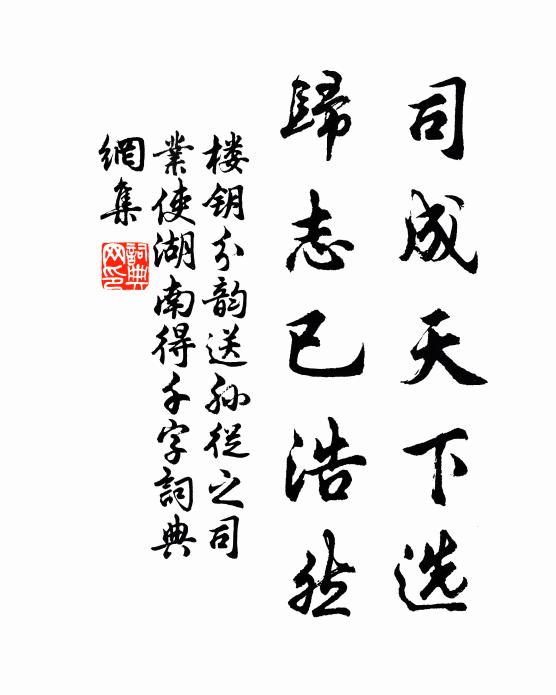 司成天下选
歸志已浩然
楼钥分韵送孙從之司
業使湖南得千字詞典
網集
詞典
网印